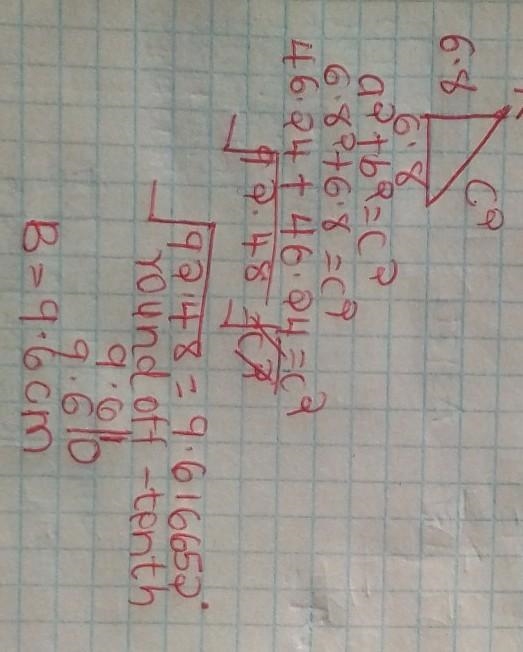 6.8
6.8
C²
a²+b²=C²
6.8²+6.8=C²
46.24+46.24=C²
√92.48=√C²
√92.48=9.616652
round off-tenth
9.61
9.610
B=9.6cm